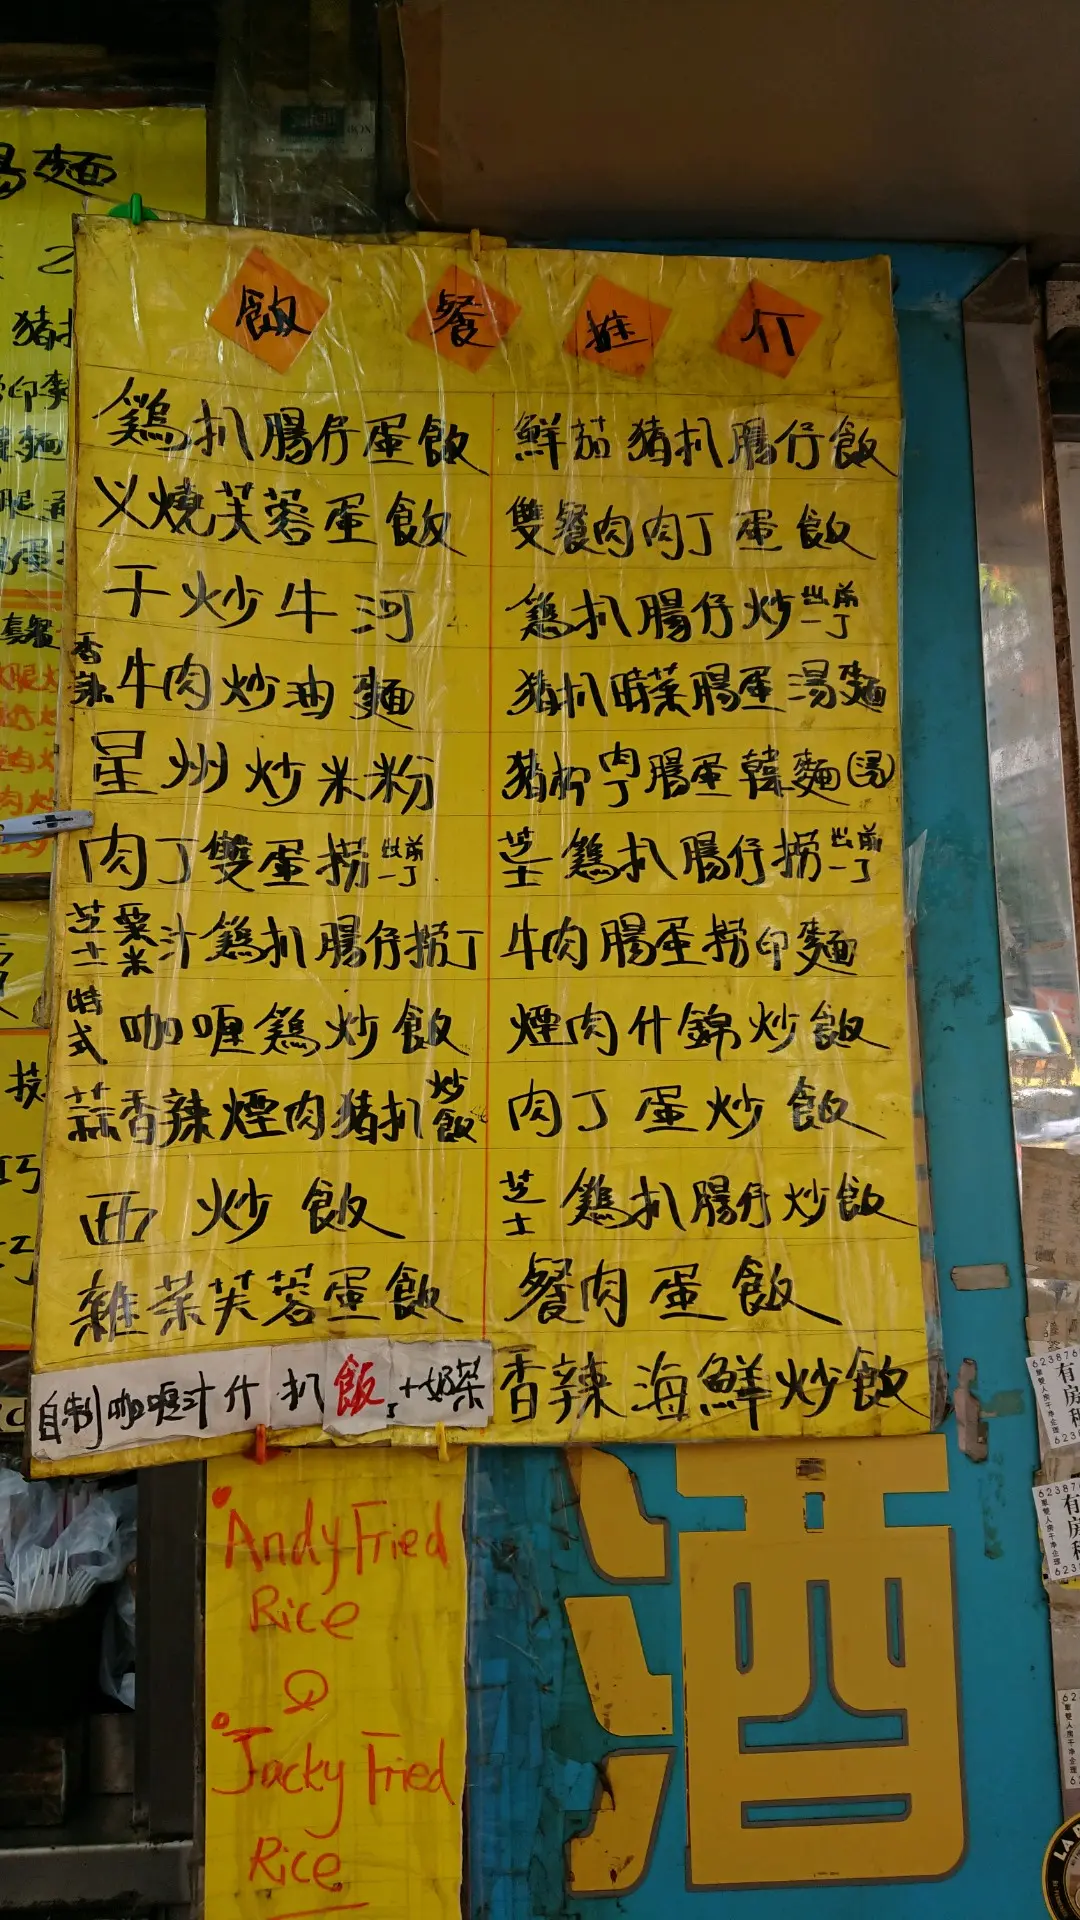 湯麵
飯餐推介
鷄扒腸仔蛋飯
叉燒芙蓉蛋飯
干炒牛河
香辣牛肉炒油麵
星州炒米粉
肉丁雙蛋撈出前一丁
芝士粟米汁鷄扒腸仔撈丁
時式咖喱鷄炒飯
蒜香辣煙肉豬扒炒飯
西炒飯
雜菜芙蓉蛋飯
自制咖喱汁什扒飯+奶茶
鮮茄豬扒腸仔飯
雙餐肉肉丁蛋飯
鷄扒腸仔炒出前一丁
豬扒時菜腸蛋湯麵
豬柳肉丁腸蛋韓麵(湯)
芝士鷄扒腸仔撈出前一丁
牛肉腸蛋撈印麵
煙肉什錦炒飯
肉丁蛋炒飯
芝士鷄扒腸仔炒飯
餐肉蛋飯
香辣海鮮炒飯
Andy Fried
Rice
Jacky Fried
Rice
酒